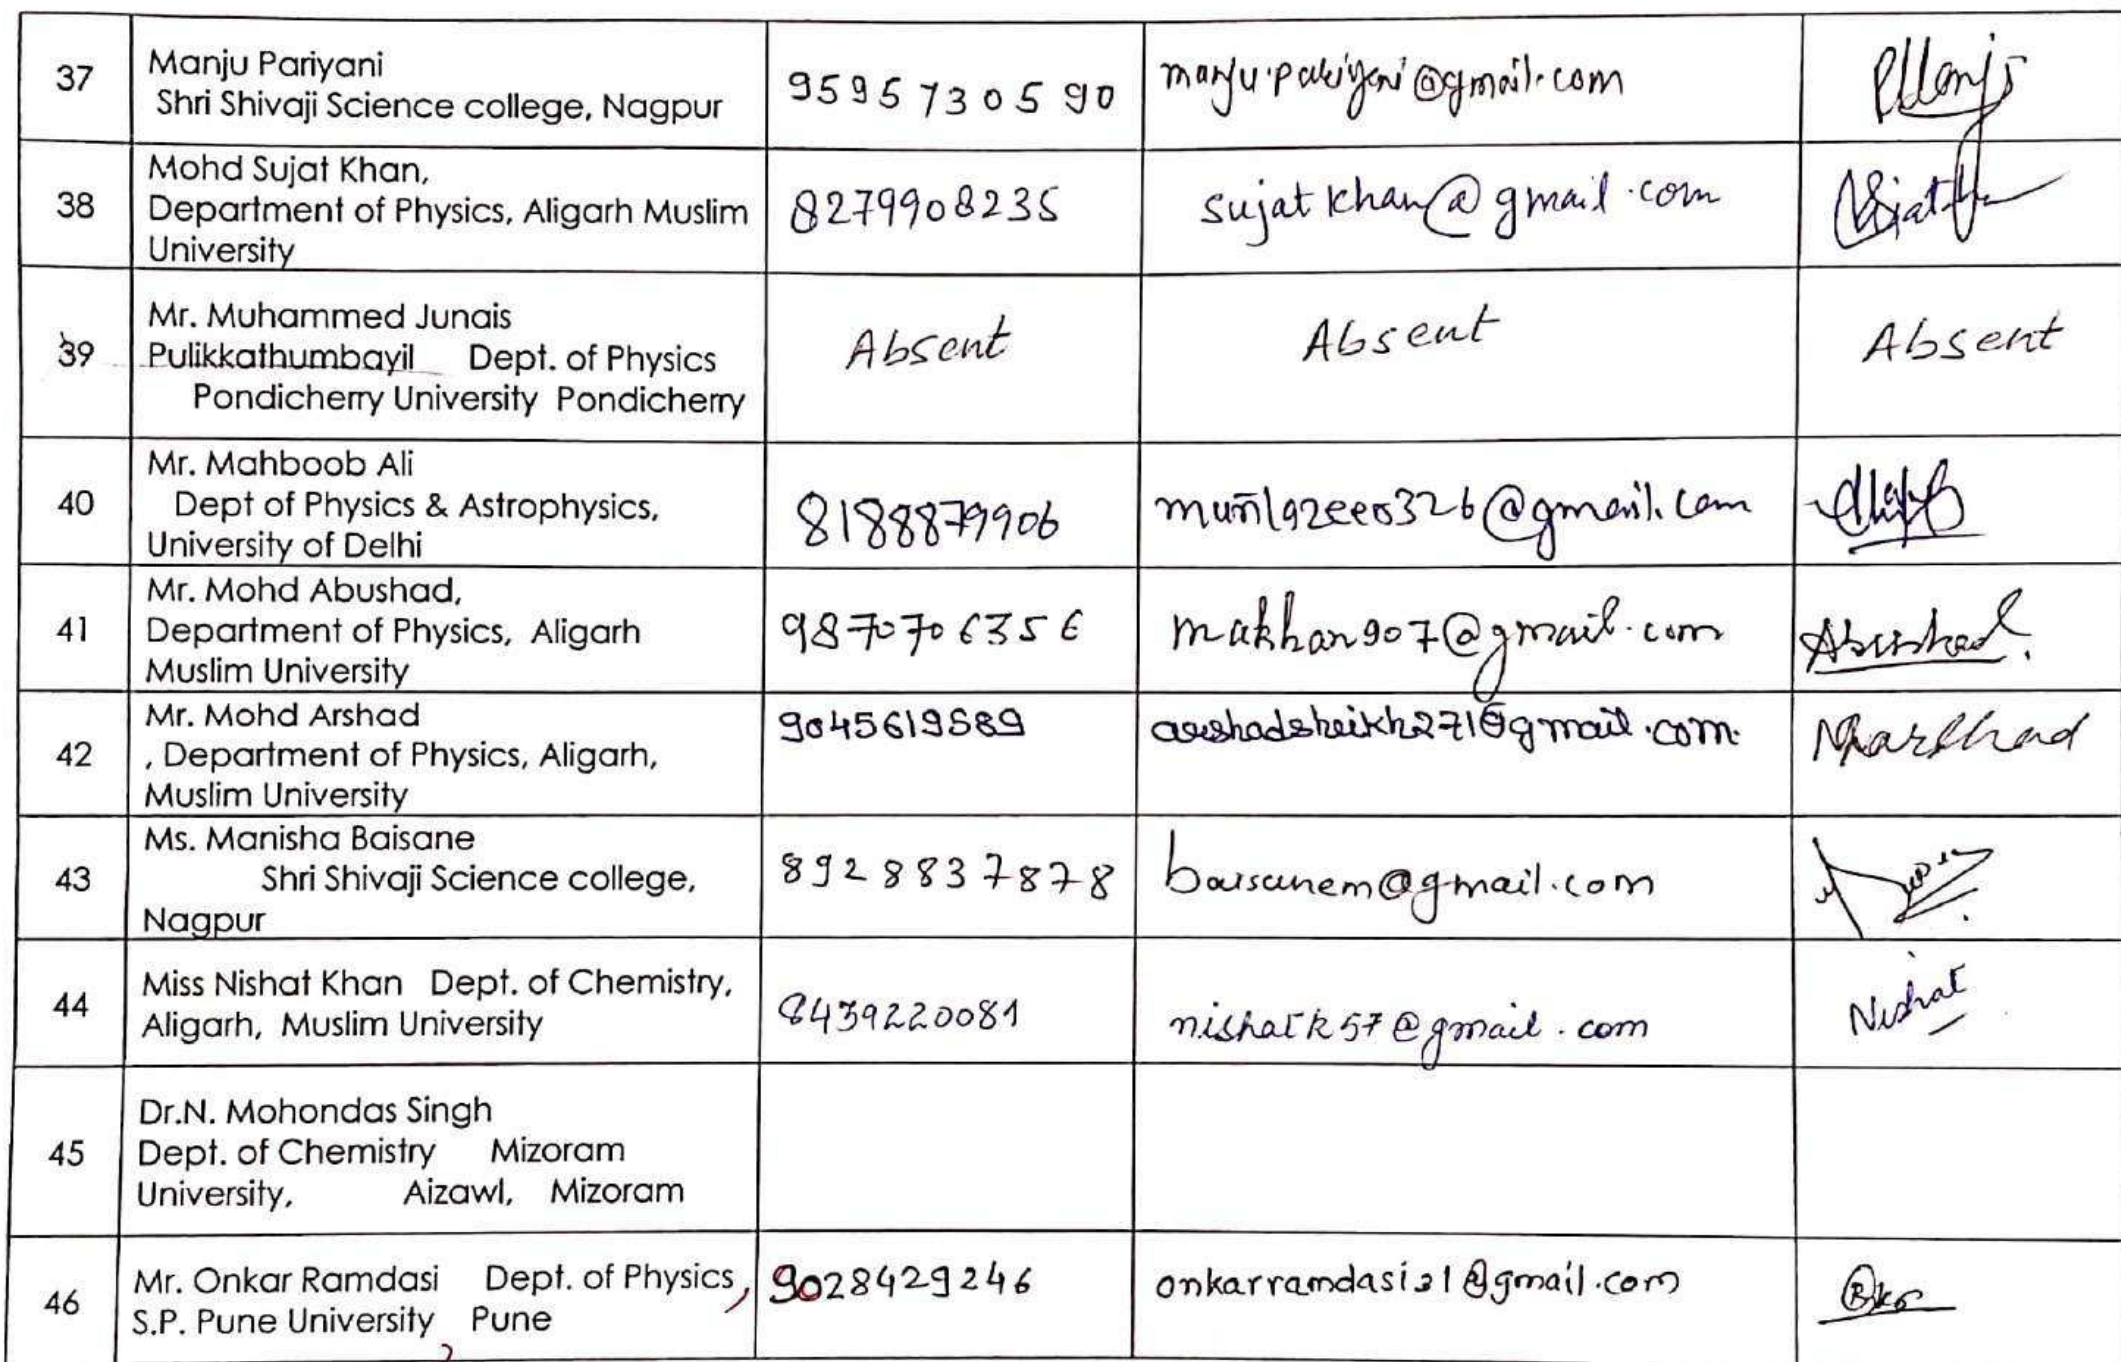 37
Manju Pariyani
Shri Shivaji Science college, Nagpur
9595730590
manju.pariyani@gmail.com
38
Mohd Sujat Khan,
Department of Physics, Aligarh Muslim
University
8279908235
sujatkhan@gmail.com
39
Mr. Muhammed Junais
Pulikkathumbayil Dept. of Physics
Pondicherry University Pondicherry
Absent
Absent
Absent
40
Mr. Mahboob Ali
Dept of Physics & Astrophysics,
University of Delhi
8188879906
41
Mr. Mohd Abushad,
Department of Physics, Aligarh
Muslim University
9870706356
makhan907@gmail.com
Abushad.
42
Mr. Mohd Arshad
, Department of Physics, Aligarh,
Muslim University
arshadsheikh271@gmail.com
43
Ms. Manisha Baisane
Shri Shivaji Science college,
Nagpur
8928837878
baisanem@gmail.com
44
Miss Nishat Khan Dept. of Chemistry,
Aligarh, Muslim University
8439220081
nishatk57@gmail.com
Nishat
45
Dr.N. Mohondas Singh
Dept. of Chemistry Mizoram
University, Aizawl, Mizoram
46
Mr. Onkar Ramdasi Dept. of Physics,
S.P. Pune University, Pune
9028429246
onkarramdasi31@gmail.com